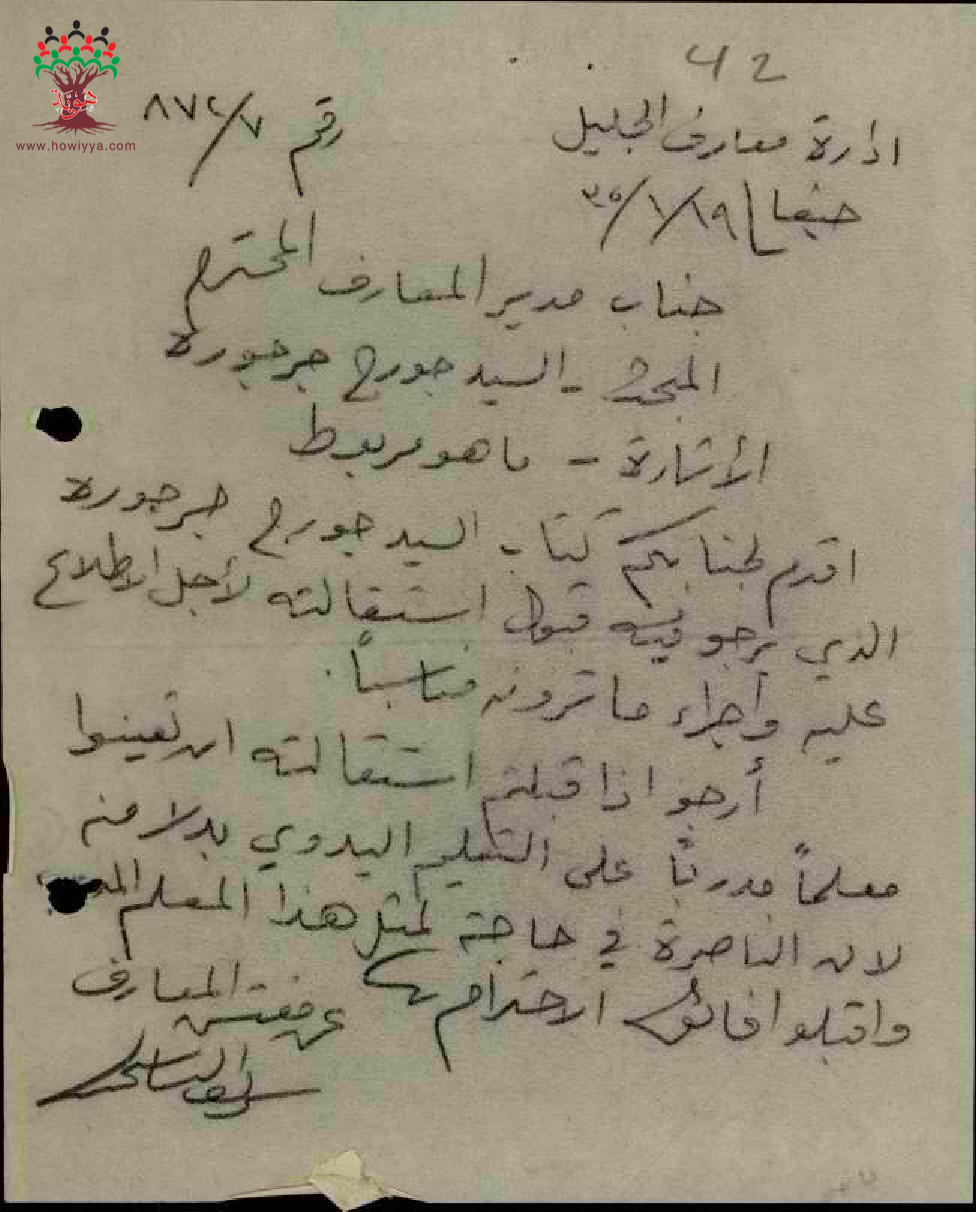 42
هوية
www.howiyya.com
ادارة معارف الجليل
رقم ٧/٨٧٤
حيفا ١٩/١/٣٥
جناب مدير المعارف المحترم
المبحث - السيد جورج جرجورة
الأشارة - ما هو مربوط
اقدم لجنابكم كتاب السيد جورج جرجورة
الذي يرجو فيه قبول استقالته لأجل الاطلاع
عليه وأجراء ما ترونه مناسباً.
أرجو اذا قبلتم استقالته ان تعينوا
معلماً مدرباً على التعليم اليدوي بدلا منه
لان الناصرة في حاجة لمثل هذا المعلم
واقبلوا فائق الاحترام
عن مفتش المعارف